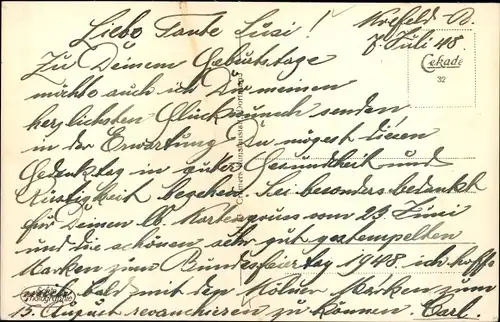 Krefeld R.
7 Juli 48.
Liebe Tante Susi!
Zu Deinem Geburtstage
möchte auch ich Dir meinen
herzlichsten Glückwunsch senden
in der Erwartung Du mögest diesen
Gedenktag in guter Gesundheit und
Rüstigkeit begehen. Sei besonders bedankt
für Deinen lb. Kartengruss vom 23. Juni
und die schönen sehr gut gestempelten
Marken zum Bundesfeiertag 1948. ich hoffe
mich bald mit den Kölner Marken zum
15. August revanchieren zu können. Carl.
Cekade
32
Cramers Kunstanstalt Dortmund